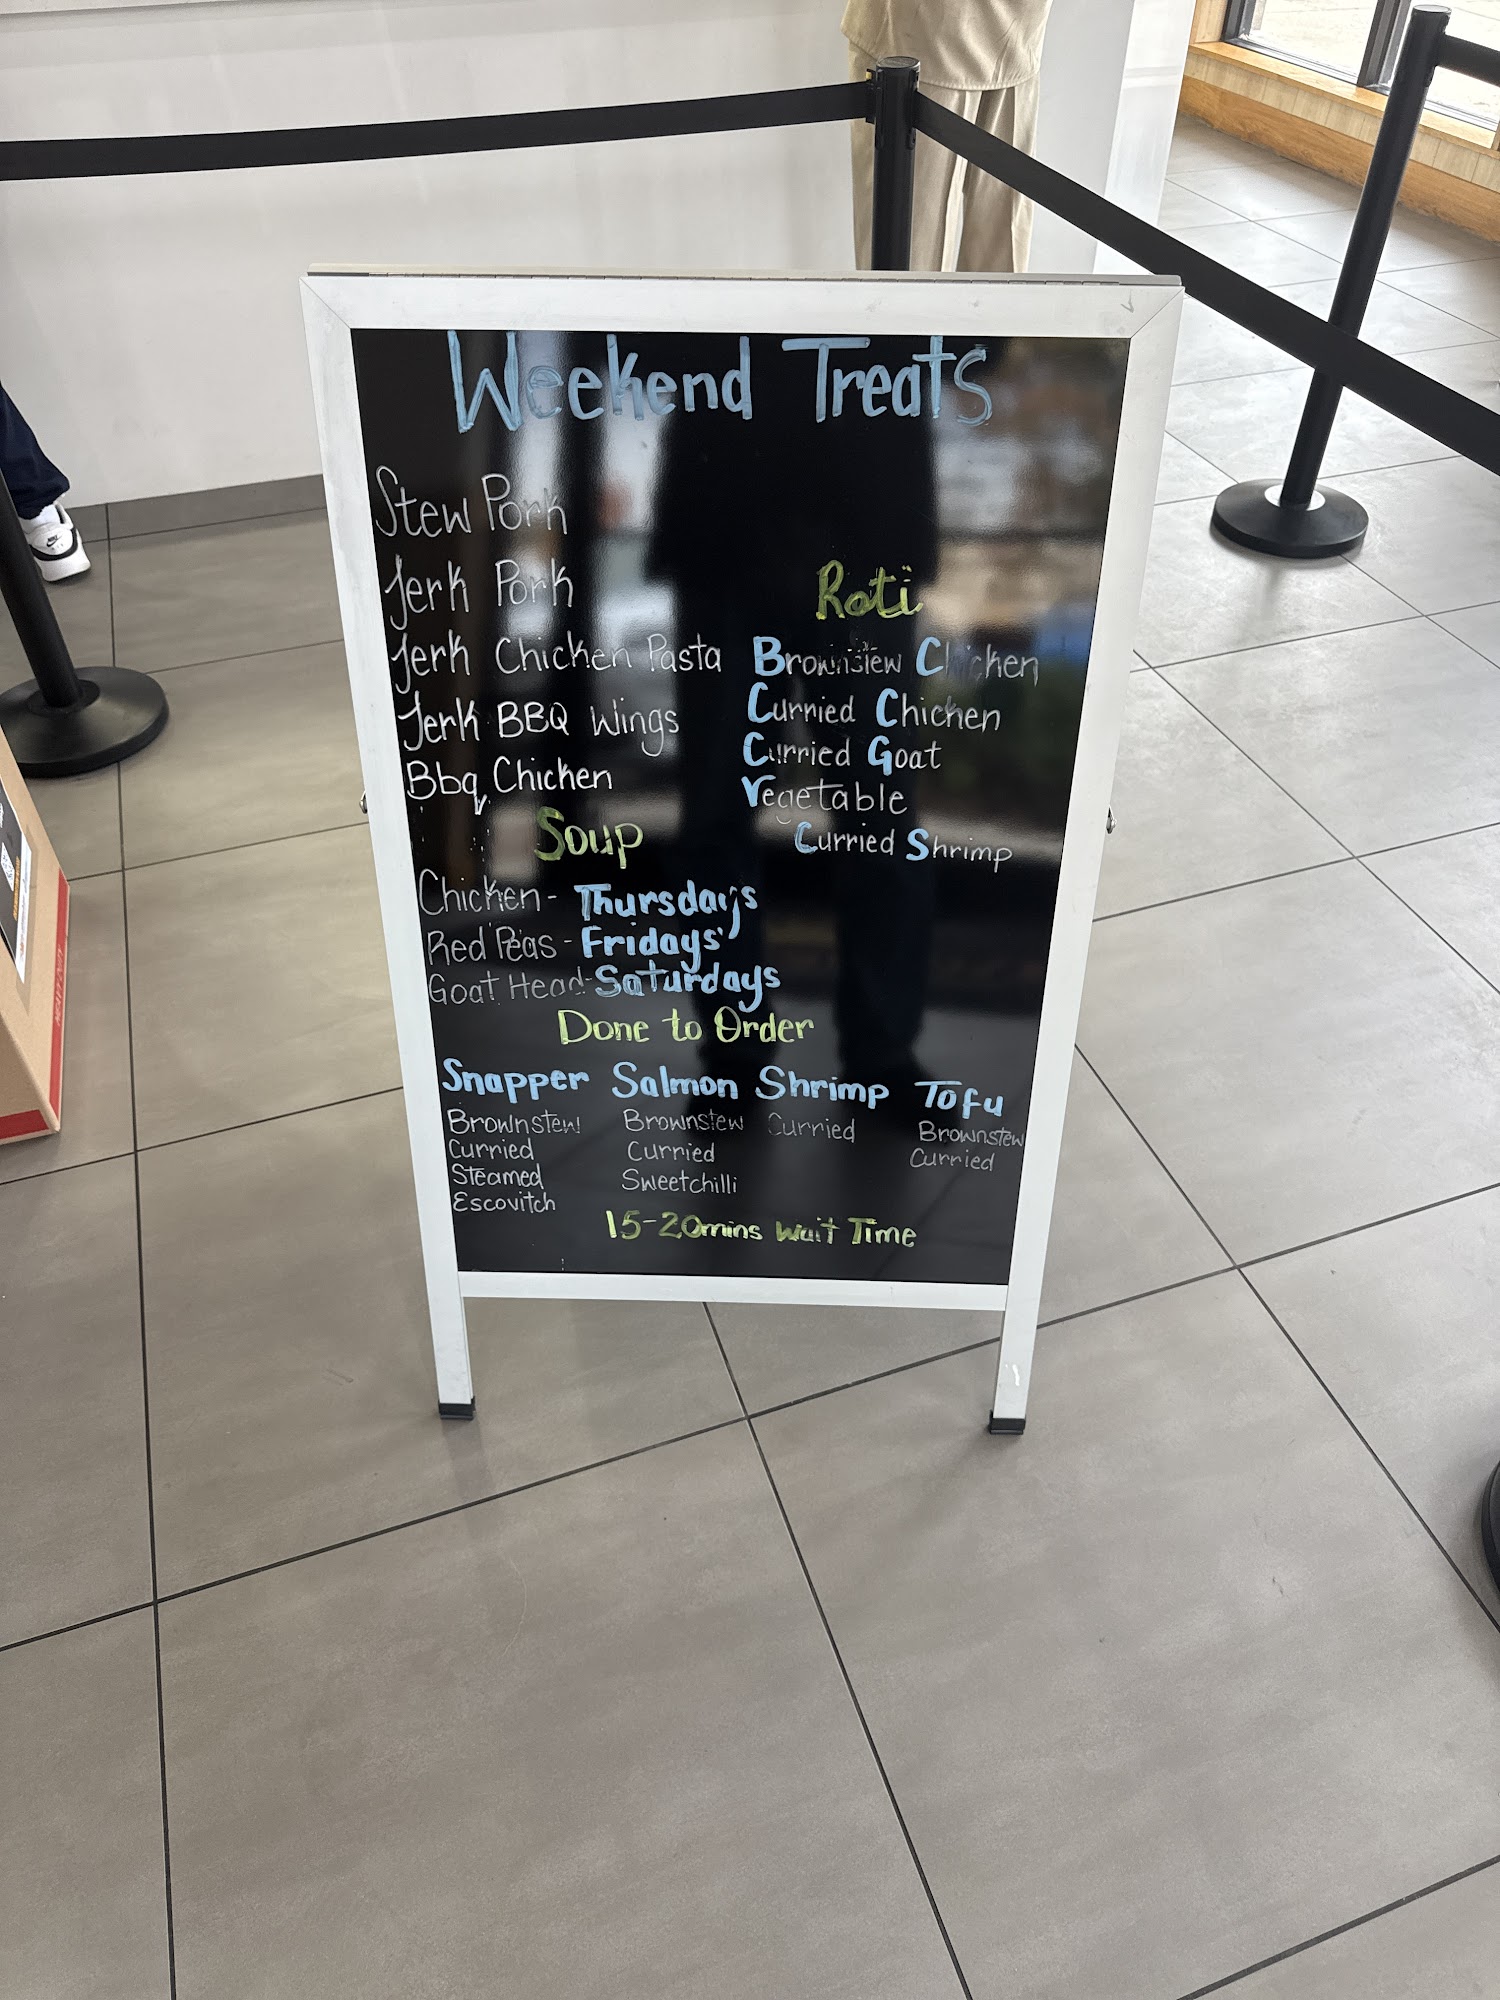 Weekend Treats
Stew Pork
Jerk Pork
Jerk Chicken Pasta
Jerk BBQ Wings
Bbq Chicken
Roti
Brownstew Chicken
Curried Chicken
Curried Goat
Vegetable
Curried Shrimp
Soup
Chicken - Thursdays
Red Peas - Fridays'
Goat Head - Saturdays
Done to Order
Snapper Salmon Shrimp Tofu
Brownstew Brownstew Curried Brownstew
Curried Curried Curried
Steamed Sweetchilli
Escovitch
15-20mins Wait Time